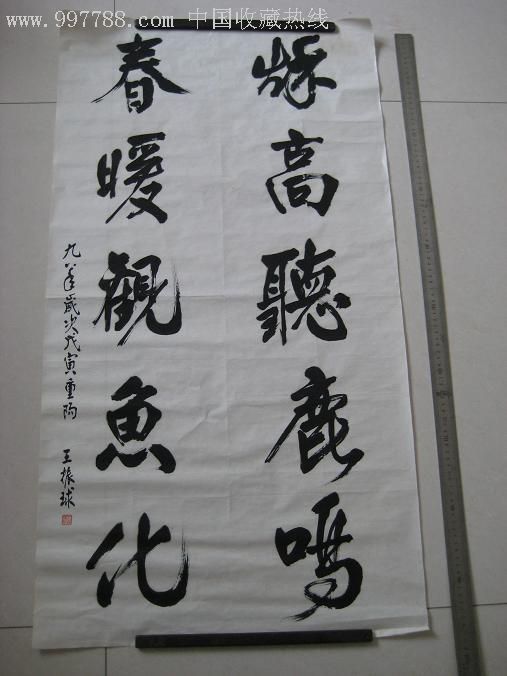 www.997788.com 中国收藏热线
秋高聽鹿鳴
春暖觀魚化
九八年歲次戊寅重陽 王振球